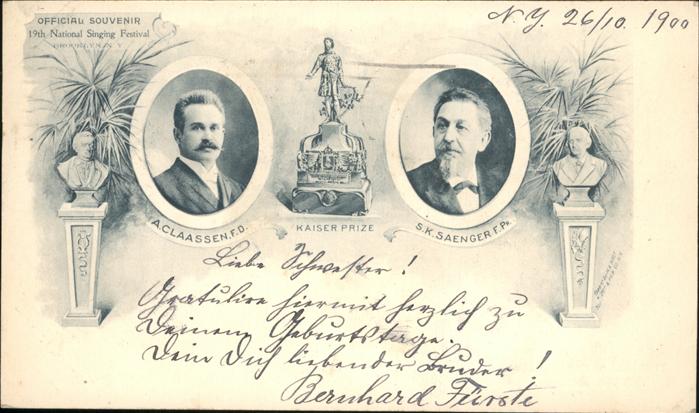 OFFICIAL SOUVENIR
19th National Singing Festival
BROOKLYN, N.Y.
N.Y. 26/10. 1900
A. CLAASSEN, F.D.
KAISER PRIZE
S.K. SAENGER F. Pr.
Liebe Schwester!
Gratulire hiermit herzlich zu
Deinem Geburtstage.
Dein Dich liebender Bruder!
Bernhard Fürste